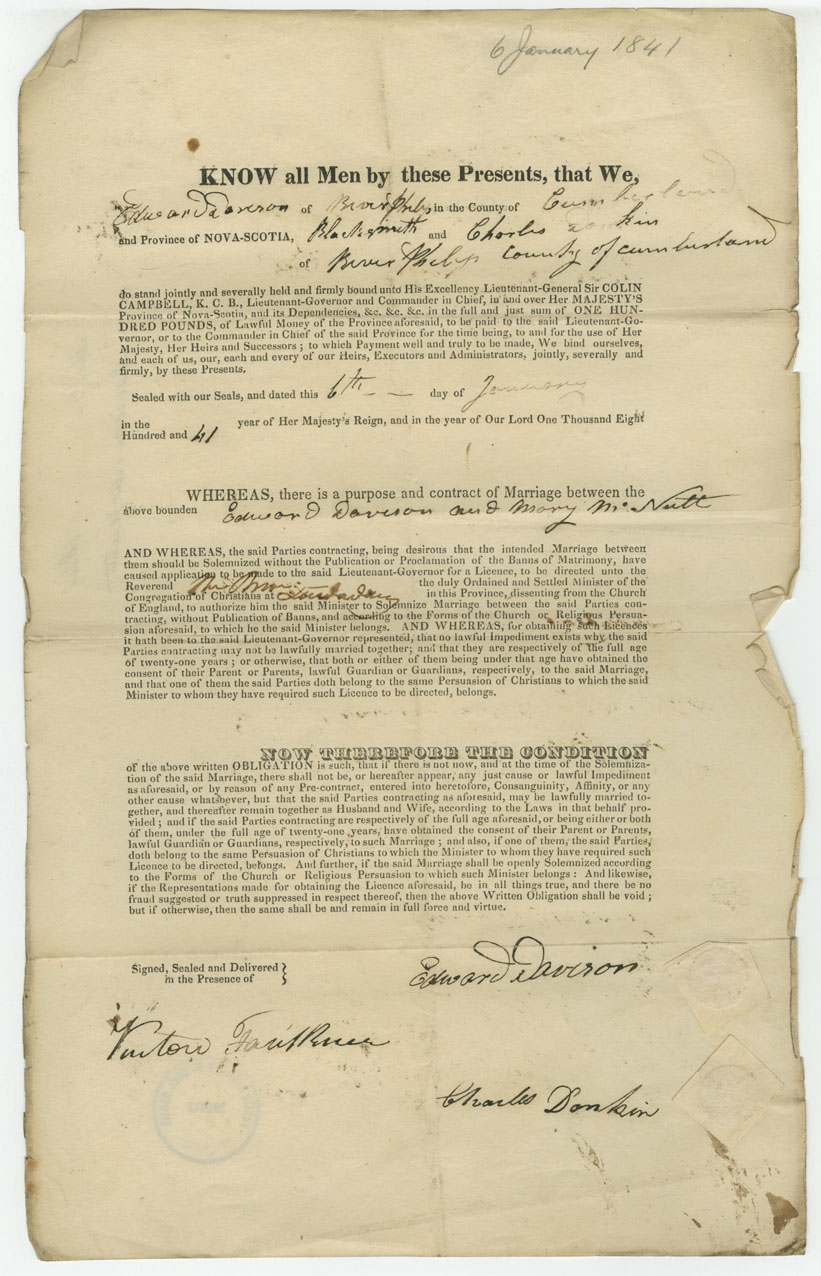 6 January 1841
KNOW all Men by these Presents, that We,
Edward Davison of River Philip in the County of Cumberland
and Province of NOVA-SCOTIA, Blacksmith and Charles Donkin
of River Philip County of Cumberland
do stand jointly and severally held and firmly bound unto His Excellency Lieutenant-General Sir COLIN
CAMPBELL, K. C. B., Lieutenant-Governor and Commander in Chief, in and over Her MAJESTY'S
Province of Nova-Scotia, and its Dependencies, &c. &c. &c. in the full and just sum of ONE HUN-
DRED POUNDS, of Lawful Money of the Province aforesaid, to be paid to the said Lieutenant-Go-
vernor, or to the Commander in Chief of the said Province for the time being, to and for the use of Her
Majesty, Her Heirs and Successors ; to which Payment well and truly to be made, We bind ourselves,
and each of us, our, each and every of our Heirs, Executors and Administrators, jointly, severally and
firmly, by these Presents.
Sealed with our Seals, and dated this 6th day of January
in the year of Her Majesty's Reign, and in the year of Our Lord One Thousand Eight
Hundred and 41
WHEREAS, there is a purpose and contract of Marriage between the
above bounden Edward Davison and Mary McNutt
AND WHEREAS, the said Parties contracting, being desirous that the intended Marriage between
them should be Solemnized without the Publication or Proclamation of the Banns of Matrimony, have
caused application to be made to the said Lieutenant-Governor for a Licence, to be directed unto the
Reverend the duly Ordained and Settled Minister of the
Congregation of Christians at in this Province, dissenting from the Church
of England, to authorize him the said Minister to Solemnize Marriage between the said Parties con-
tracting, without Publication of Banns, and according to the Forms of the Church or Religious Persua-
sion aforesaid, to which he the said Minister belongs. AND WHEREAS, for obtaining such Licences
it hath been to the said Lieutenant-Governor represented, that no lawful Impediment exists why the said
Parties contracting may not be lawfully married together; and that they are respectively of the full age
of twenty-one years ; or otherwise, that both or either of them being under that age have obtained the
consent of their Parent or Parents, lawful Guardian or Guardians, respectively, to the said Marriage,
and that one of them the said Parties doth belong to the same Persuasion of Christians to which the said
Minister to whom they have required such Licence to be directed, belongs.
NOW THEREFORE THE CONDITION
of the above written OBLIGATION is such, that if there is not now, and at the time of the Solemniza-
tion of the said Marriage, there shall not be, or hereafter appear, any just cause or lawful Impediment
as aforesaid, or by reason of any Pre-contract, entered into heretofore, Consanguinity, Affinity, or any
other cause whatsoever, but that the said Parties contracting as aforesaid, may be lawfully married to-
gether, and thereafter remain together as Husband and Wife, according to the Laws in that behalf pro-
vided ; and if the said Parties contracting are respectively of the full age aforesaid, or being either or both
of them, under the full age of twenty-one years, have obtained the consent of their Parent or Parents,
lawful Guardian or Guardians, respectively, to such Marriage ; and also, if one of them, the said Parties,
doth belong to the same Persuasion of Christians to which the Minister to whom they have required such
Licence to be directed, belongs. And further, if the said Marriage shall be openly Solemnized according
to the Forms of the Church or Religious Persuasion to which such Minister belongs : And likewise,
if the Representations made for obtaining the Licence aforesaid, be in all things true, and there be no
fraud suggested or truth suppressed in respect thereof, then the above Written Obligation shall be void ;
but if otherwise, then the same shall be and remain in full force and virtue.
Signed, Sealed and Delivered
in the Presence of
Edward Davison
Faulkner
Charles Donkin